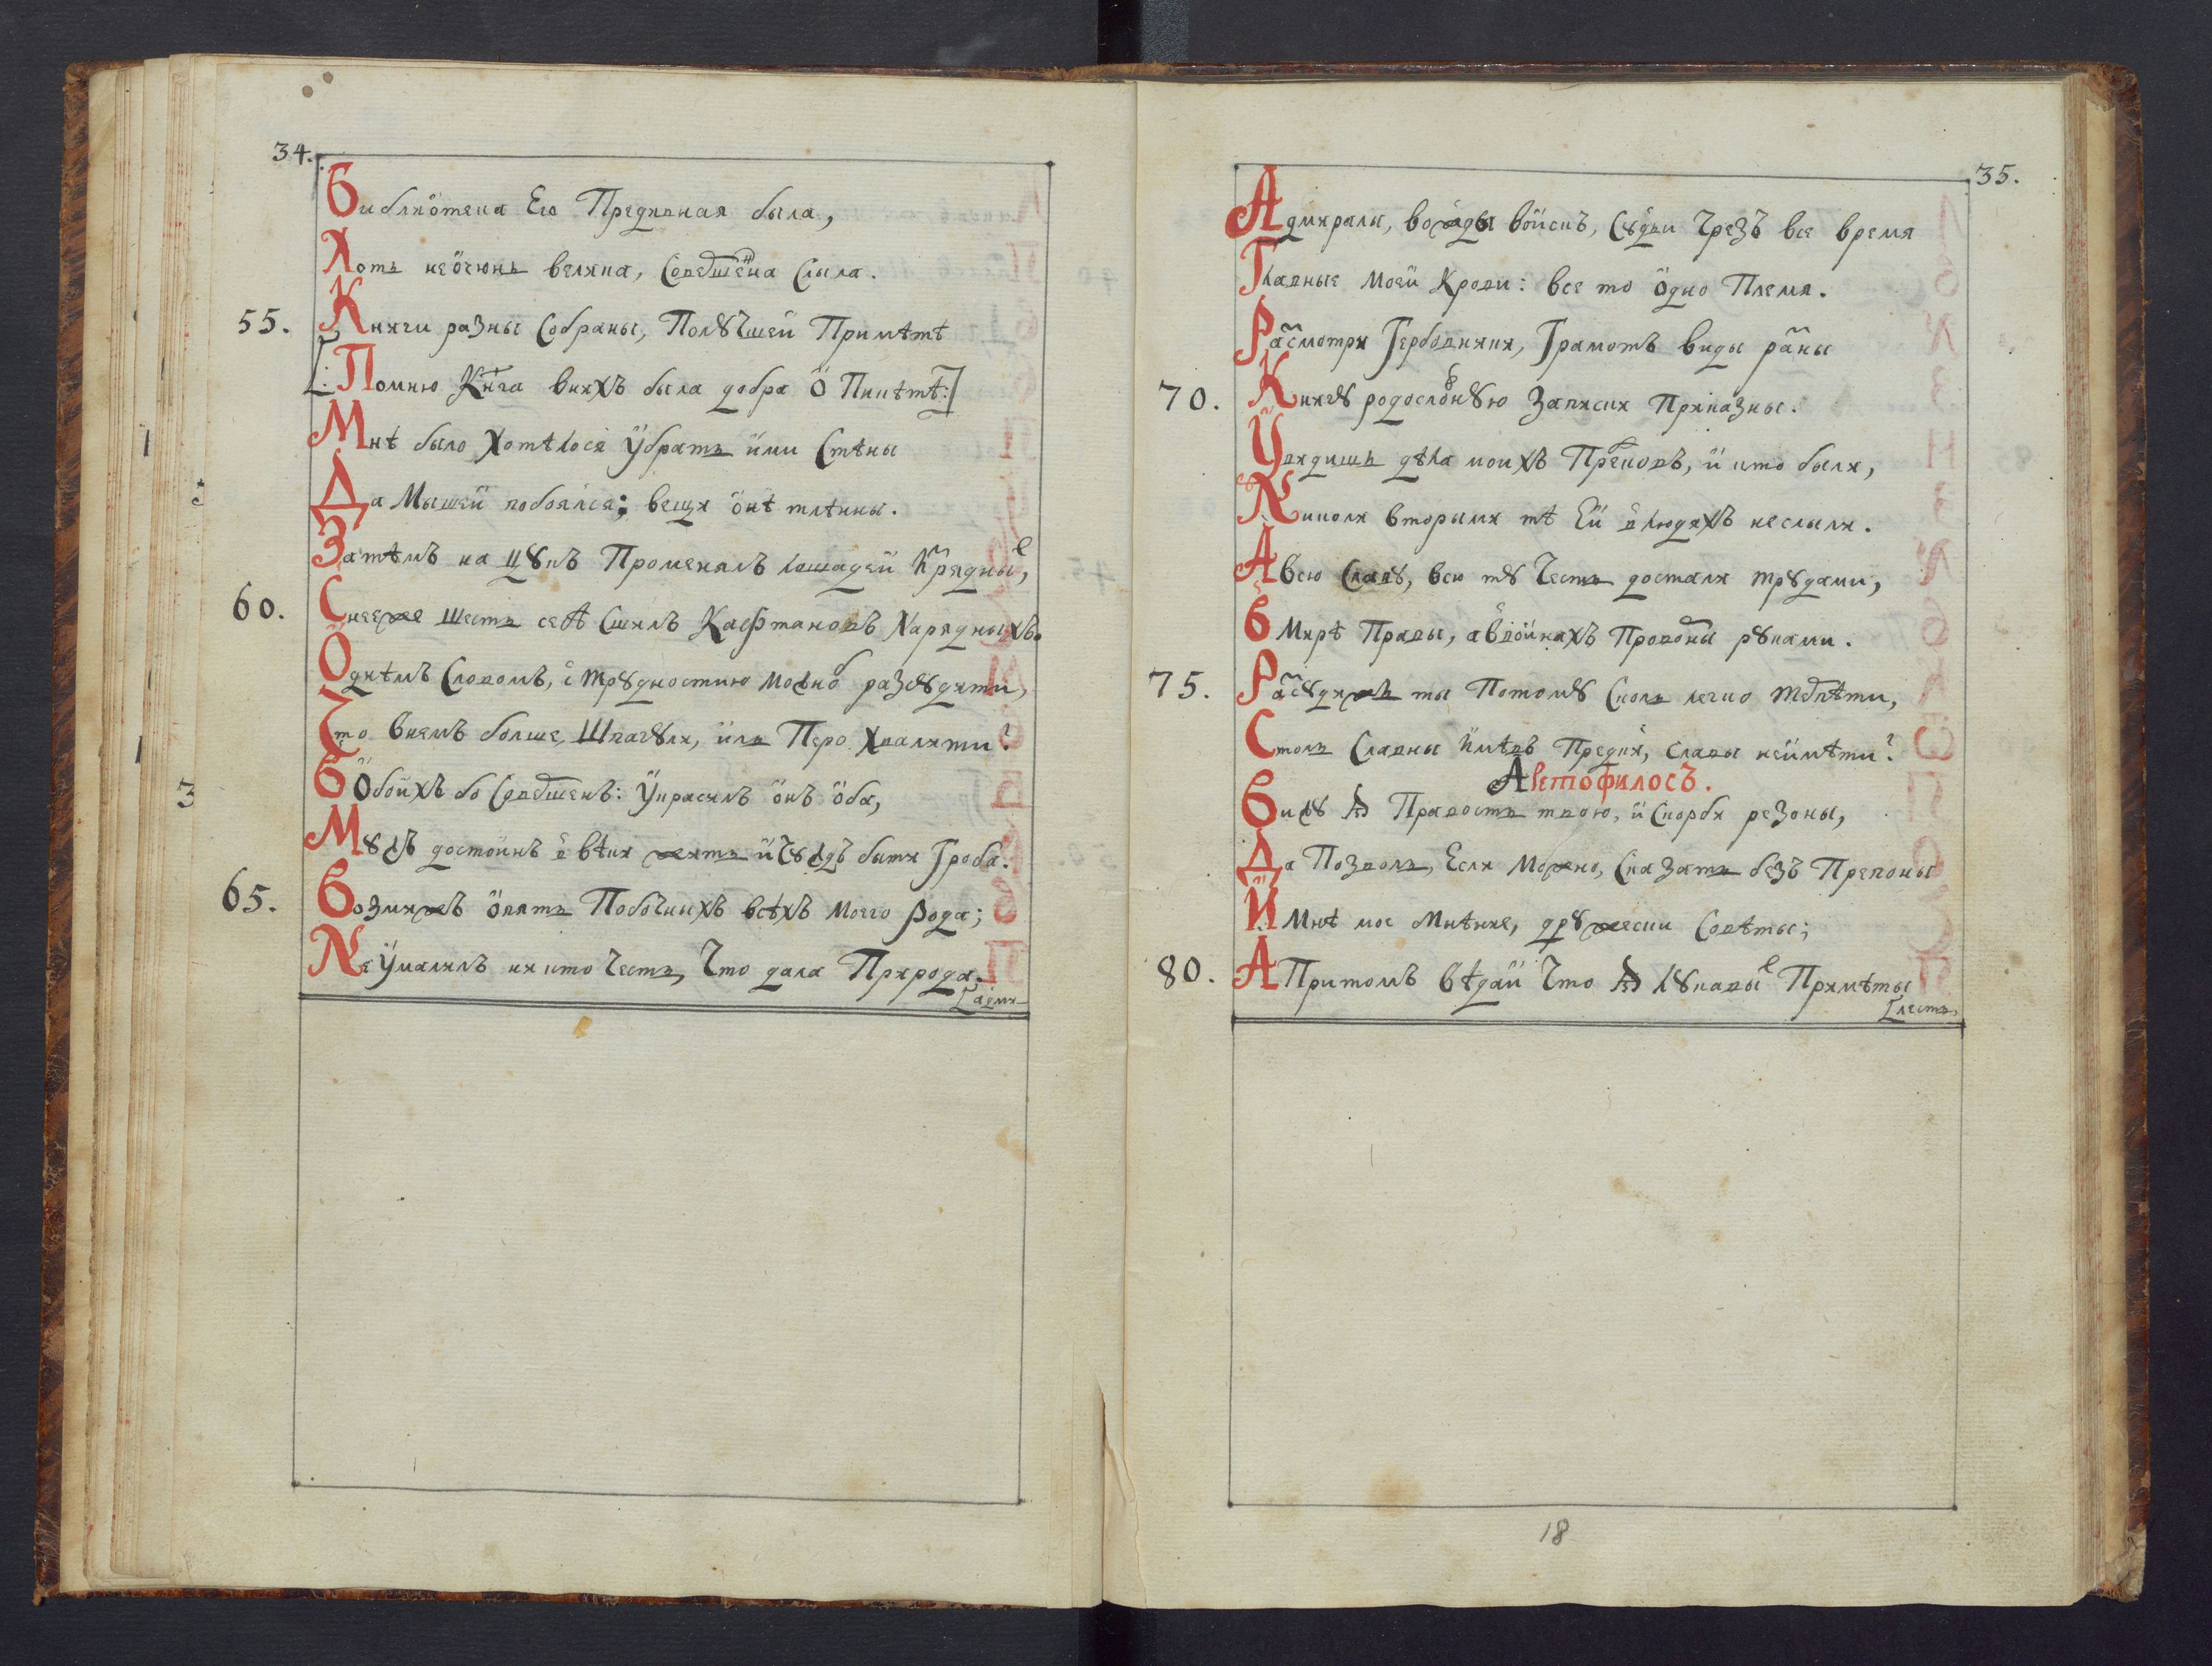 34.
Библиѡтека Его Предивная была,
Хоть неѻчюнь велика, Совершенна Слыла.
55. Книги разны Собраны, Полꙋчшей Примѣтѣ
[: Помню Кнга внихъ была добра Ѻ Пиитѣ:]
Мнѣ было Хотѣлося Убрать ими Стѣны
Да Мышей побоялся; вещи онѣ тлѣнны.
Затѣмъ на Цꙋкъ Променялъ лошадей Изрядныхъ,
60. Снееже Шесть себѣ Сшилъ Кафтановъ Нарядныхъ.
Однѣмъ Словомъ, с Трꙋдностию Можно разсꙋдити,
Что Внемъ болше, Шпагꙋли, иль Перо Хвалити?
Вобоихъ бо Совершенъ: Украсилъ онъ оба,
Мꙋжъ достоинъ в вѣки жить и Чꙋждъ быти Гроба.
65. Возмижъ опять Побочныхъ всѣхъ Моего Рода;
Не Умалилъ никто Честь, Что дала Природа.
[Адми-
35.
Адмиралы, вожды войскъ, Сꙋдьи Чрезъ все время
Главные Моей Крови: все то Одно Племя.
Расмотри Гербовники, Грамотъ виды разны
70. Книгꙋ родословнꙋю Записки Приказны.
Увидишь дѣла моихъ Предковъ, и кто были,
Николи вторыми тѣ Ей в людяхъ неслыли.
А всю Славꙋ, всю тꙋ Честь достали трꙋдами,
В Мирѣ Правы, авВойнахъ Проворны рꙋками.
75. Расꙋдижъ ты Потомꙋ Сколь легко терпѣти,
Столь Славны Имѣвъ Предки, славы неимѣти?
Аретофилосъ.
Вижꙋ Ѧ Правость твою, и Скорби резоны,
Да Позволь, Если Можно, Сказать безъ Препоны
И Мнѣ мое Мнѣние, дрꙋжески Совѣты;
80. А Притомъ вѣдай Что Ѧ лꙋкавые Примѣты
[лесть,
18